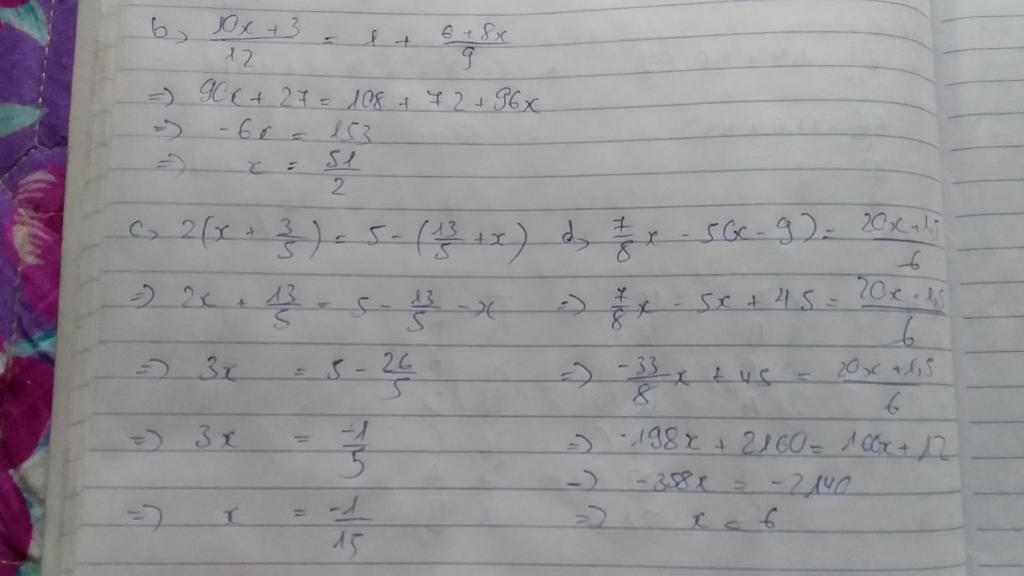 b, (10x + 3)/12 = 1 + (6 + 8x)/9
=> 90x + 27 = 108 + 72 + 96x
=> -6x = 153
=> x = 51/2
c, 2(x + 3/5) = 5 - (13/5 + x)
=> 2x + 13/5 = 5 - 13/5 - x
=> 3x = 5 - 26/5
=> 3x = -1/5
=> x = -1/15
d, 7/8 x - 5(x - 9) = (20x + 1,5)/6
=> 7/8 x - 5x + 45 = (20x + 1,5)/6
=> -33/8 x + 45 = (20x + 1,5)/6
=> -198x + 2160 = 160x + 12
=> -358x = -2140
=> x = 6